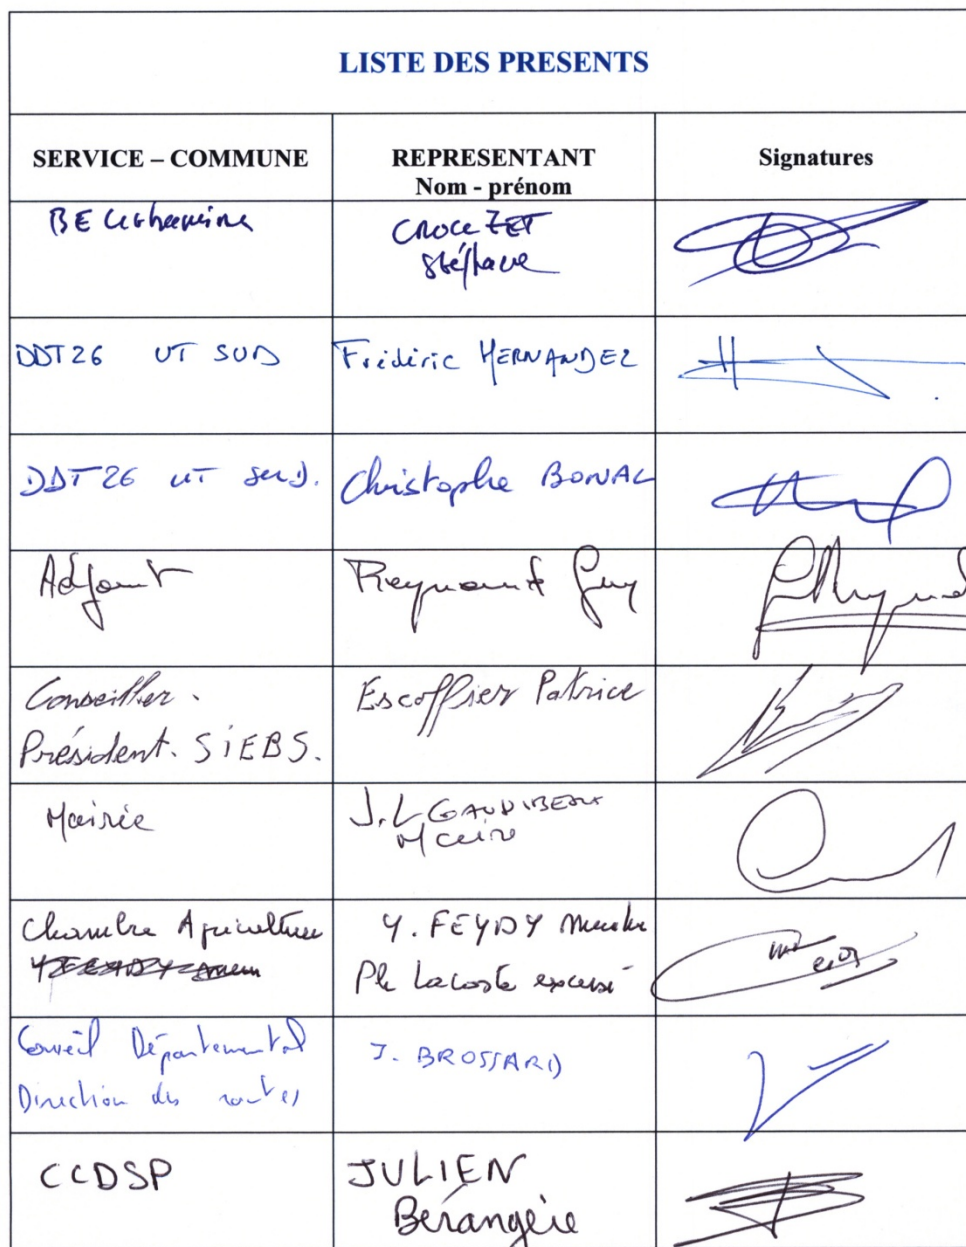 LISTE DES PRESENTS
SERVICE – COMMUNE
REPRESENTANT
Nom - prénom
Signatures
BE
CROCEZET
Stéphane
DDT26 UT SUD
Frédéric HERNANDEZ
DDT26 UT SUD.
Christophe BONAL
Adjoint
Reynaud Guy
Conseiller.
Président. SIEBS.
Escoffier Patrice
Mairie
J.L
Maire
Chambre Agriculture
Y. FEYDY
Ph Lacoste excusé
Conseil Départemental
Direction des routes
J. BROSSARD
CCDSP
JULIEN
Bérangère